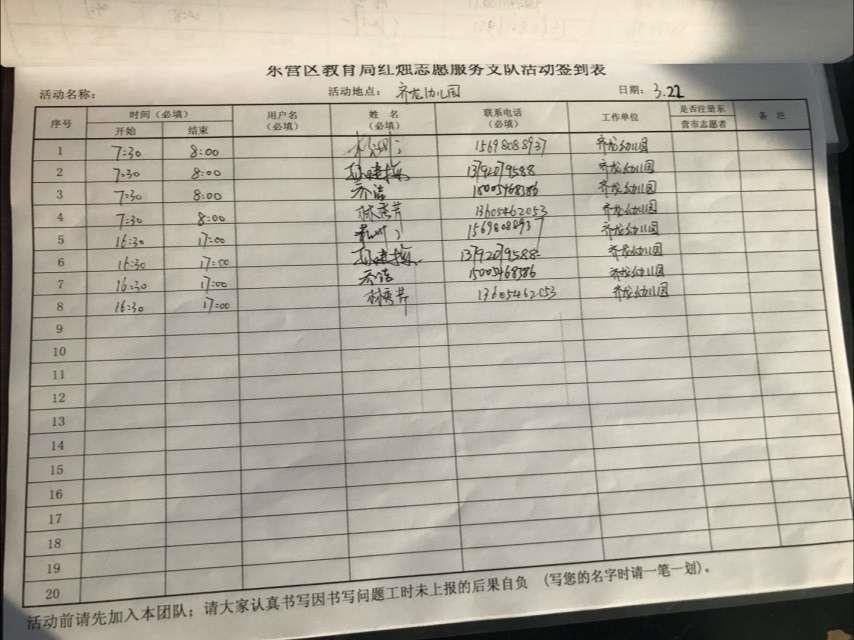 东营区教育局红烛志愿服务支队活动签到表
活动名称: 活动地点: 齐龙幼儿园 日期: 3.22
序号 时间（必填） 用户名（必填） 姓 名（必填） 联系电话（必填） 工作单位 是否注册东营市志愿者 备 注
开始 结束
1 7:30 8:00 15698088937 齐龙幼儿园
2 7:30 8:00 13792079588 齐龙幼儿园
3 7:30 8:00 乔洁 15005468586 齐龙幼儿园
4 7:30 8:00 林秀芹 13605462053 齐龙幼儿园
5 16:30 17:00 15698088937 齐龙幼儿园
6 16:30 17:00 13792079588 齐龙幼儿园
7 16:30 17:00 乔洁 15005468586 齐龙幼儿园
8 16:30 17:00 林秀芹 13605462053 齐龙幼儿园
9
10
11
12
13
14
15
16
17
18
19
20
活动前请先加入本团队；请大家认真书写因书写问题工时未上报的后果自负 （写您的名字时请一笔一划）。